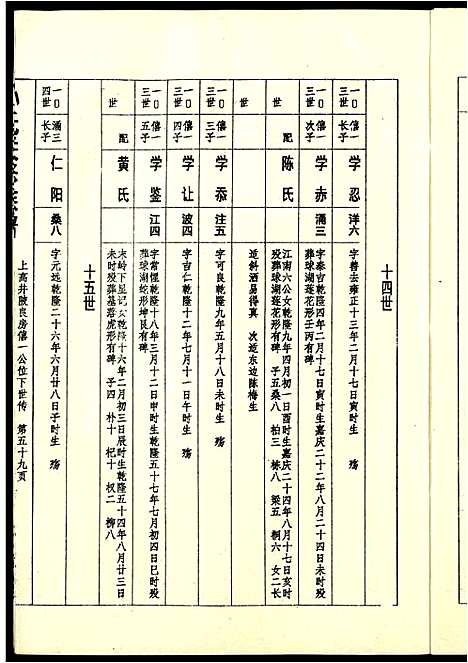 十四世
一〇三世 僖一长子 学忍 洋六 字善去雍正十三年二月十七日寅时生 殇
一〇三世 僖一次子 学赤 涌三 字泰吉乾隆四年二月十七日寅时生嘉庆二十二年八月二十四日未时殁
葬球湖莲花形壬丙有碑
世 配 陈氏 江南六公女乾隆九年四月初一日酉时生嘉庆二十四年八月十七日亥时
殁葬球湖莲花形有碑 子五桑八 柏三 栋八 梁五 桐六 女二长
世 适斜酒易得真 次适东边陈梅生
一〇三世 僖一三子 学忝 注五 字可良乾隆九年五月十八日未时生 殇
一〇三世 僖一四子 学让 波四 字吉仁乾隆十二年七月十一日午时生 殇
一〇三世 僖一五子 学鉴 江四 字常惺乾隆十八年三月十二日申时生乾隆五十七年七月初四日巳时殁
葬球湖蛇形坤艮有碑
世 配 黄氏 末岭下显记女乾隆十六年二月初三日辰时生乾隆五十四年八月廿三日
未时殁葬墓君虎形有碑 子四 朴十 杞十 权二 柳八
十五世
一〇四世 涌三长子 仁阳 桑八 字元远乾隆二十六年六月廿八日子时生 殇
上高井陂良房僖一公位下世传 第五十九页